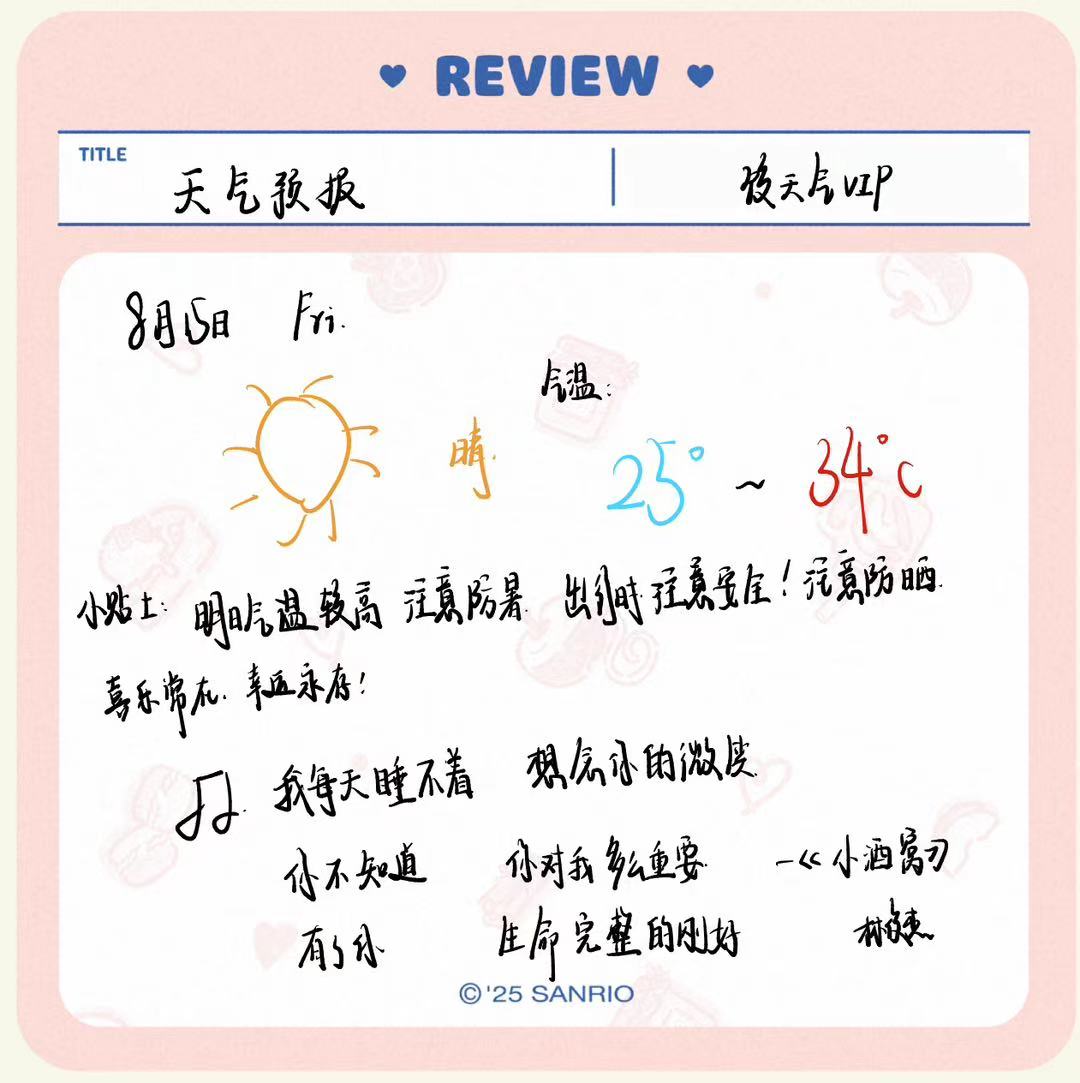 REVIEW
TITLE
天气预报
天气VIP
8月15日 Fri.
气温:
晴
25° ~ 34°C
小贴士: 明日气温较高 注意防暑 出行时注意安全! 注意防晒.
喜乐常在. 幸运永存!
我每天睡不着 想念你的微笑
你不知道 你对我多么重要 —《小酒窝》
有了你 生命完整的刚好 林俊杰
©'25 SANRIO